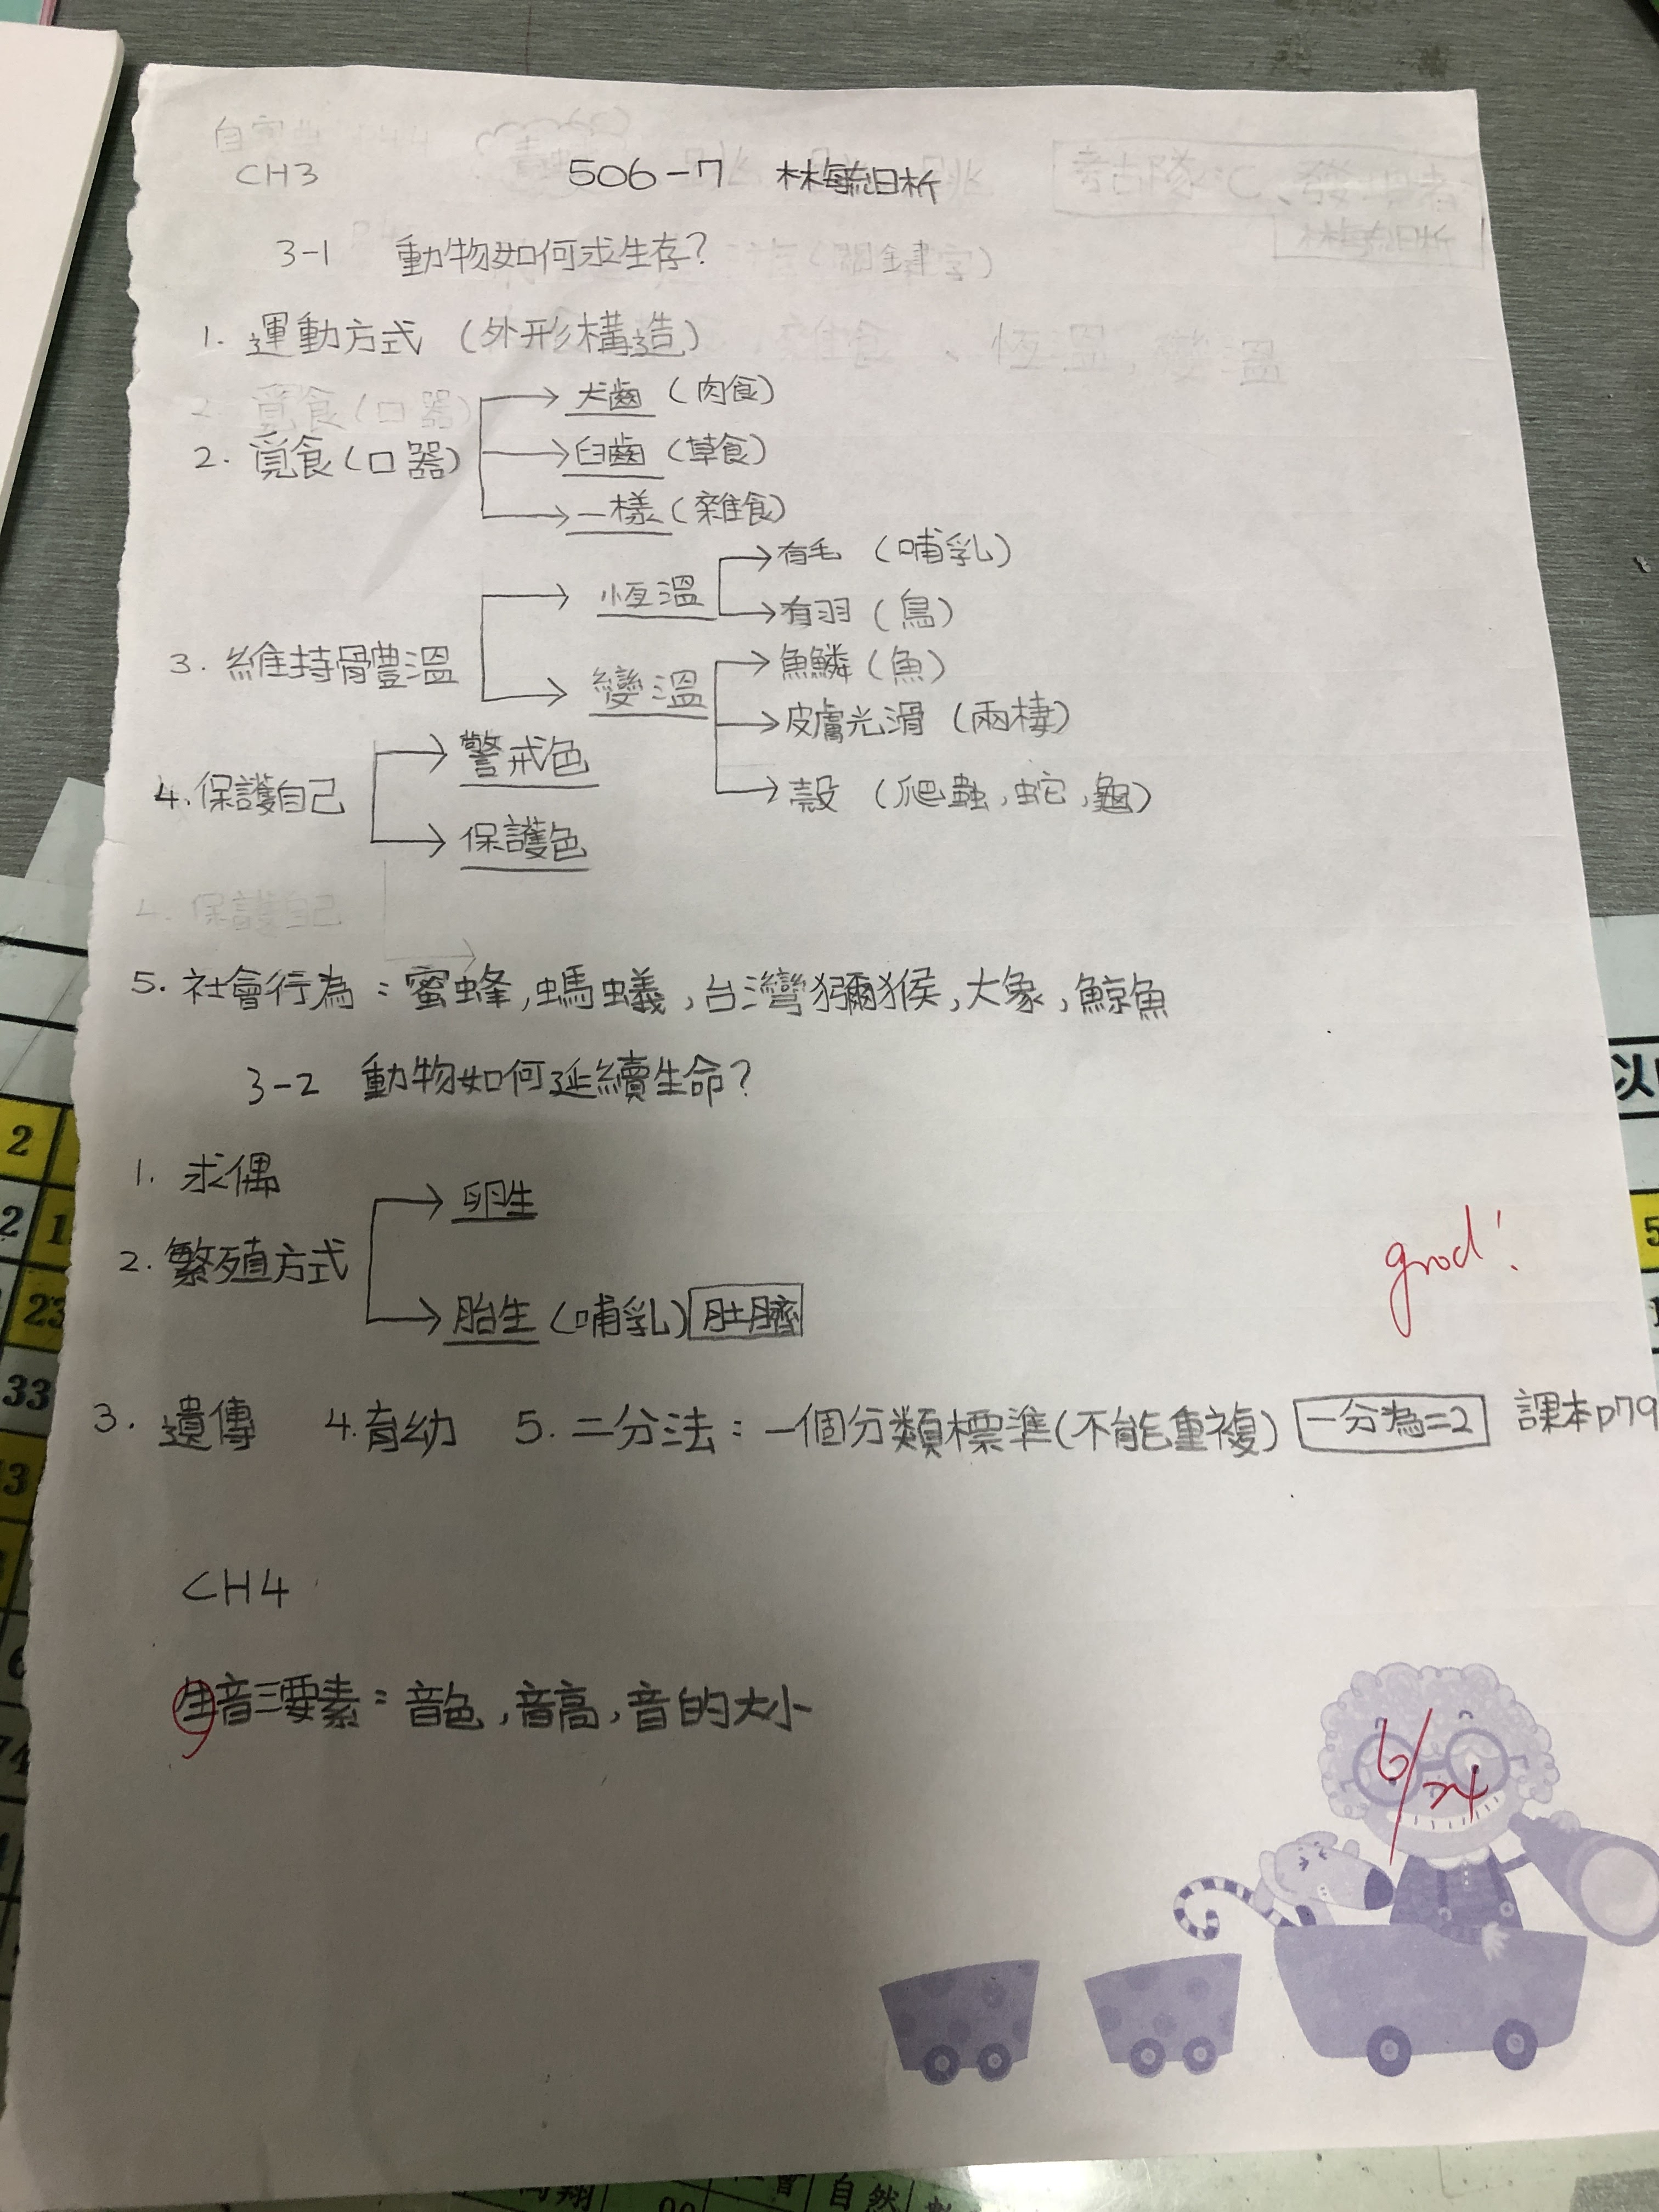 CH3 506-7 林毓晰
3-1 動物如何求生存?
1. 運動方式 (外形構造)
犬齒 (肉食)
2. 覓食(口器) 臼齒 (草食)
一樣 (雜食)
有毛 (哺乳)
恆溫
有羽 (鳥)
3. 維持體溫
魚鱗 (魚)
變溫
皮膚光滑 (兩棲)
殼 (爬蟲,蛇,龜)
警戒色
4. 保護自己
保護色
5. 社會行為:蜜蜂,螞蟻,台灣獼猴,大象,鯨魚
3-2 動物如何延續生命?
1. 求偶
卵生
2. 繁殖方式
胎生 (哺乳) 肚臍
good!
3. 遺傳 4.育幼 5. 二分法:一個分類標準(不能重複) 一分為=2 課本p79
CH4
音三要素:音色,音高,音的大小
6/24